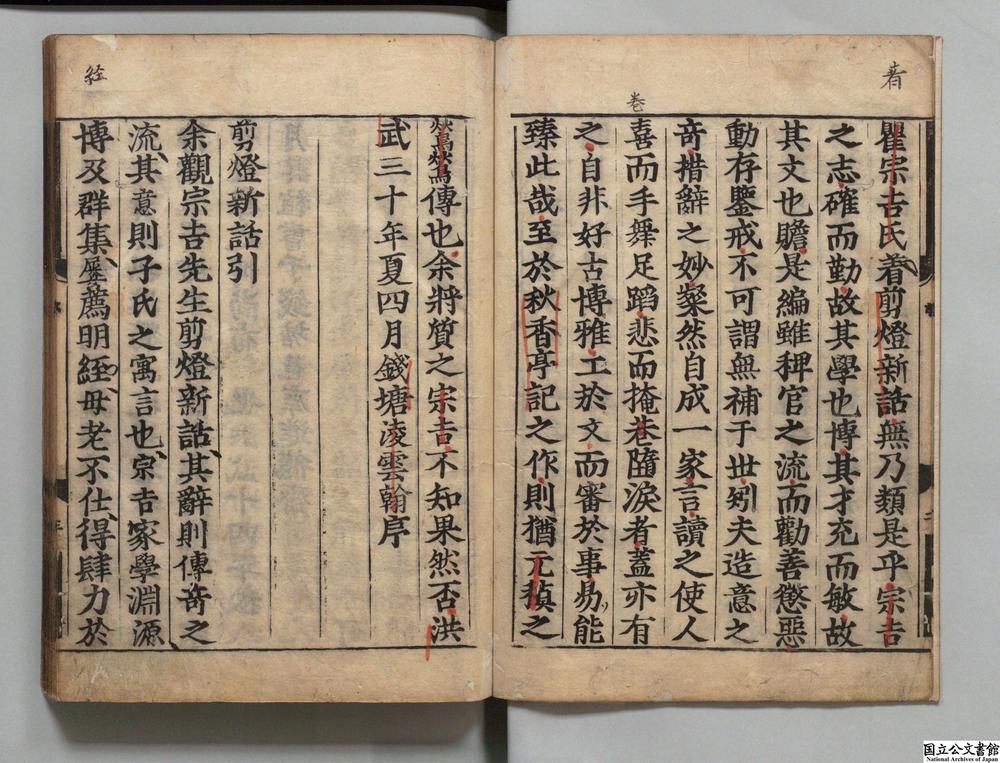 着
瞿宗吉氏着剪燈新話無乃類是乎宗吉
之志確而勤故其學也博其才充而敏故
其文也贍是編雖稗官之流而勸善懲惡
動存鑒戒不可謂無補于世矧夫造意之
奇措辭之妙粲然自成一家言讀之使人
喜而手舞足蹈悲而掩巻墮淚者蓋亦有
卷
之自非好古博雅工於文而審於事易能
臻此哉至於秋香亭記之作則猶元稹之
鶯鶯傳也余將質之宗吉不知果然否洪
武三十年夏四月錢塘淩雲翰序
剪燈新話引
余觀宗吉先生剪燈新話其辭則傳奇之
流其意則子氏之寓言也宗吉家學淵源
博及群集屢薦明經母老不仕得肆力於
经
国立公文書館
National Archives of Japan